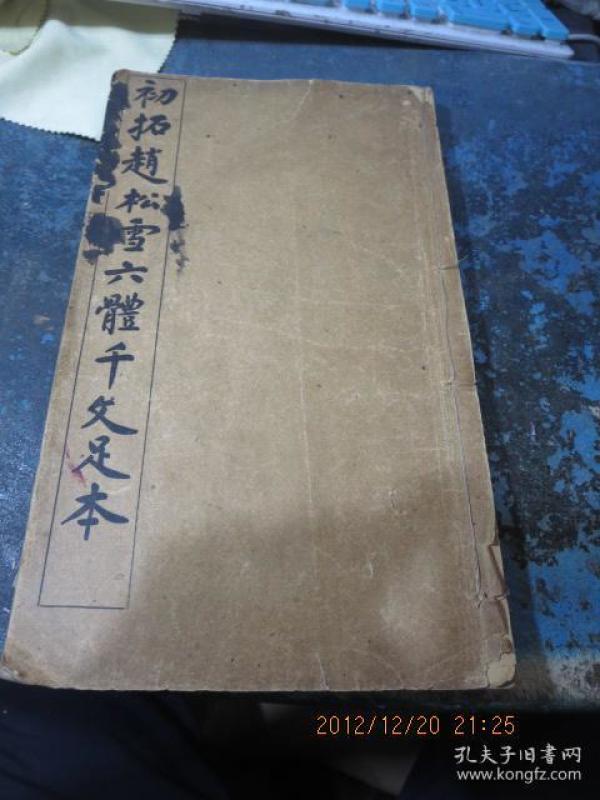 初拓趙松雪六體千文足本
2012/12/20 21:25
孔夫子旧書网
www.kongfz.com